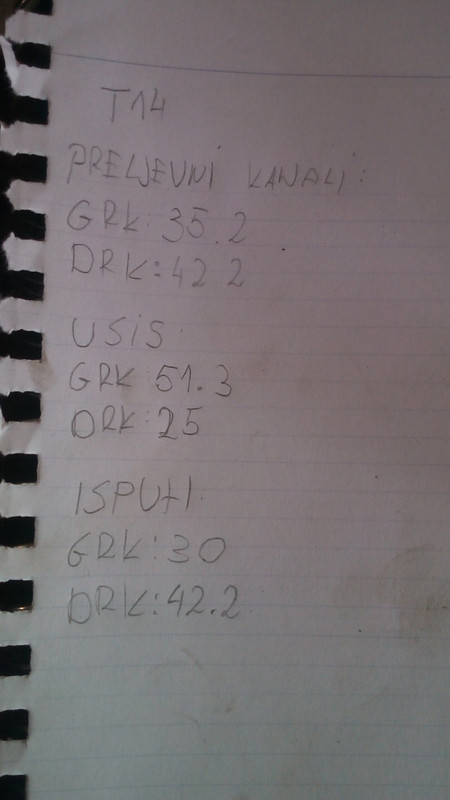 T14
PRELJEVNI KANALI:
GRK: 35.2
DRK: 42 2
USIS
GRK 51.3
DRK: 25
ISPUH
GRK: 30
DRK: 42.2